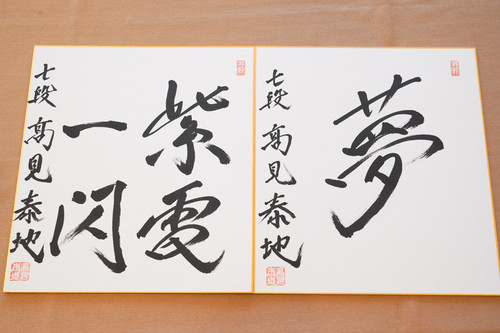 紫電
一閃
七段 髙見泰地
夢
七段 髙見泰地